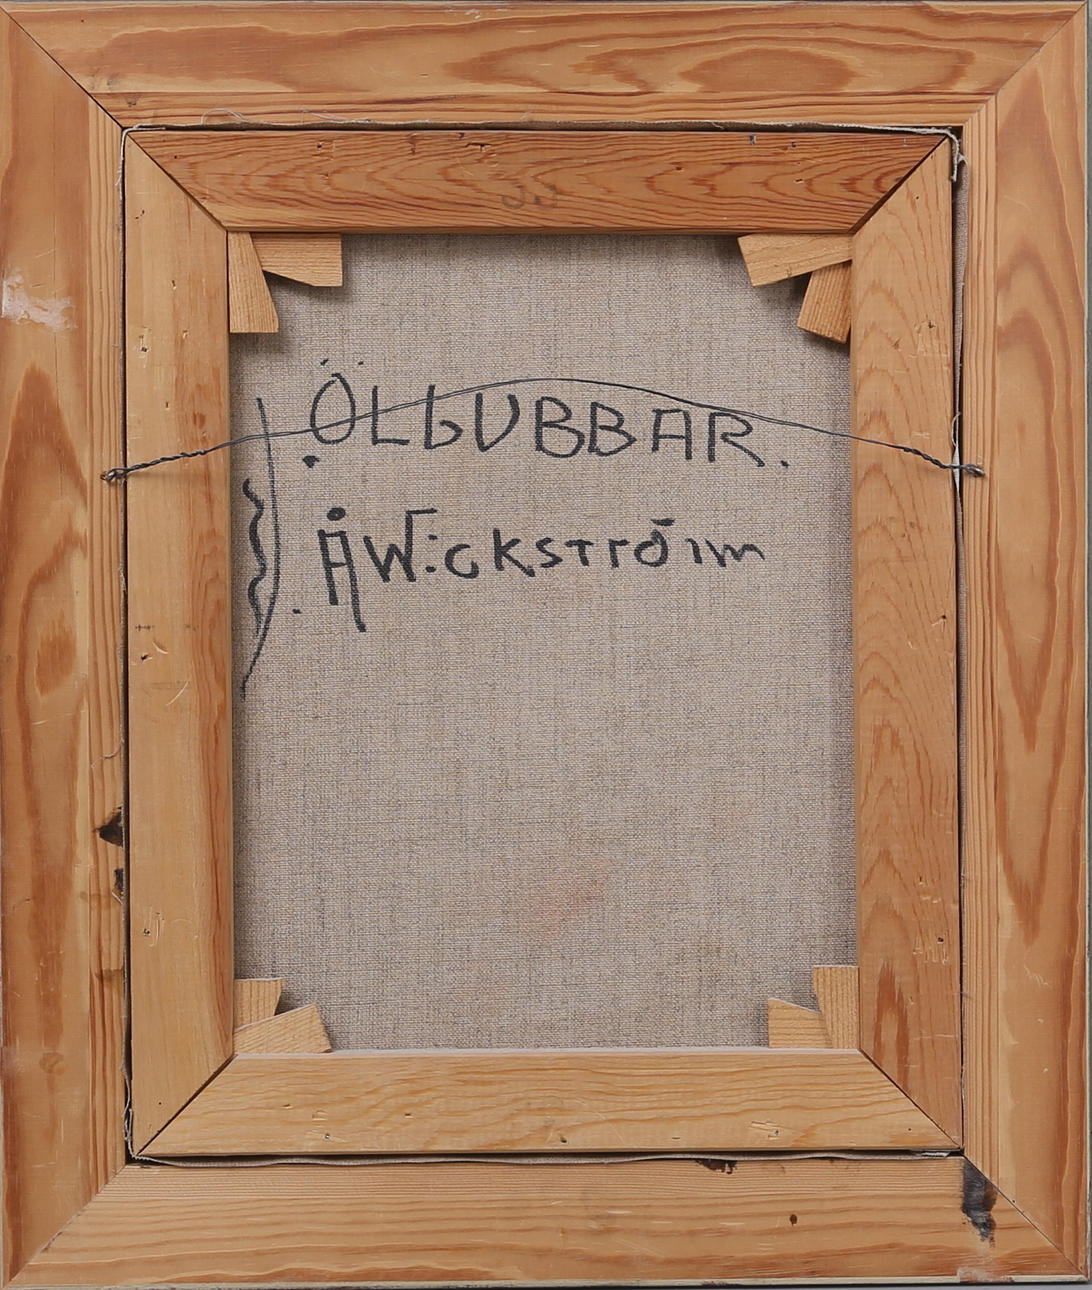 ÖLGUBBAR.
Å WICKSTRÖM